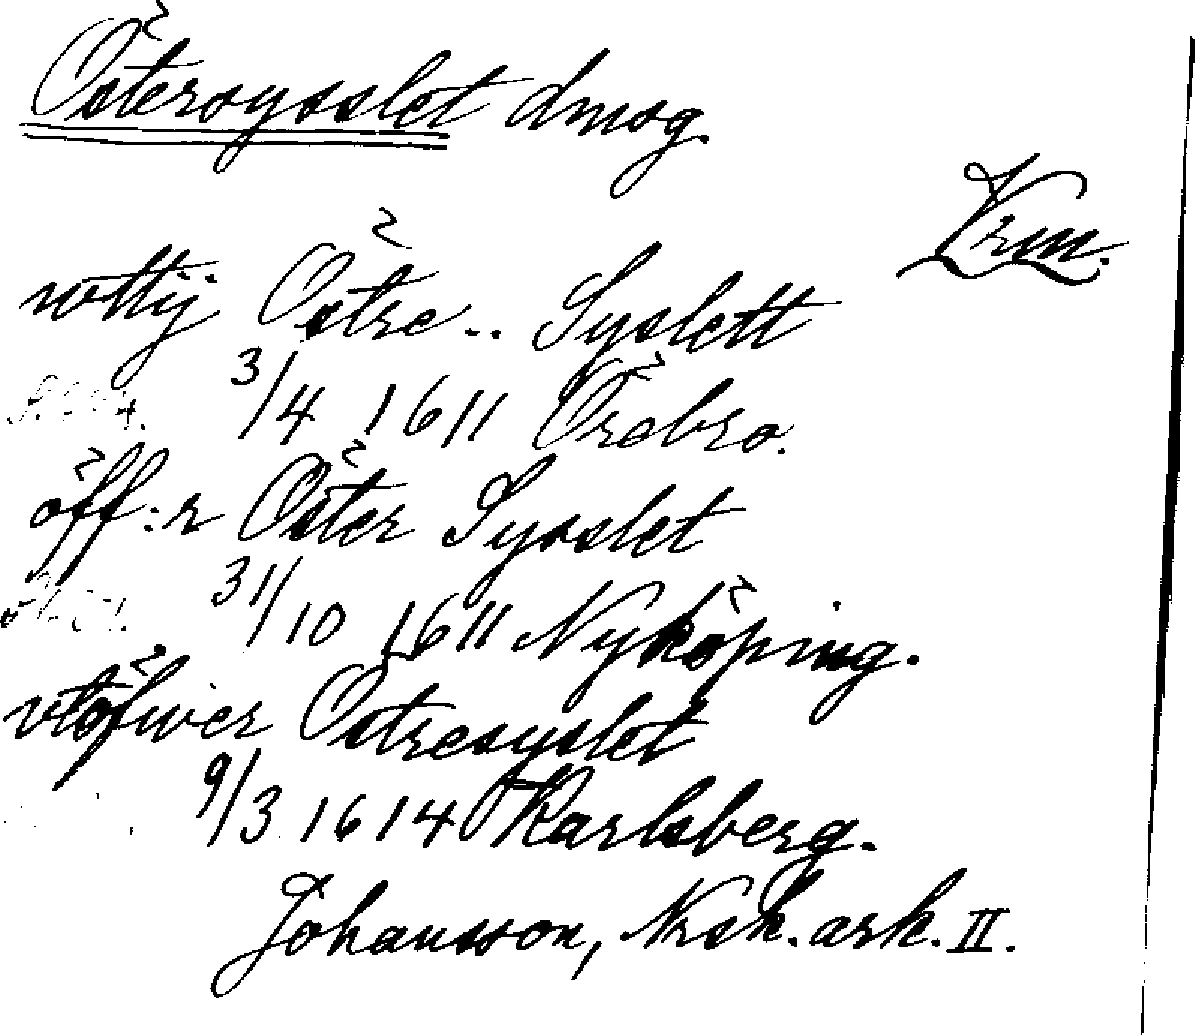 Östersysslet dmsg.
Vrm.
vttij Östre .. Syslett
3/4 1611 Örebro.
öff:r Öster Sysslet
31/10 1611 Nyköping.
vtöfwer Östresyslet
9/3 1614 Karlsberg.
Johansson, Nrsk. ark. II.